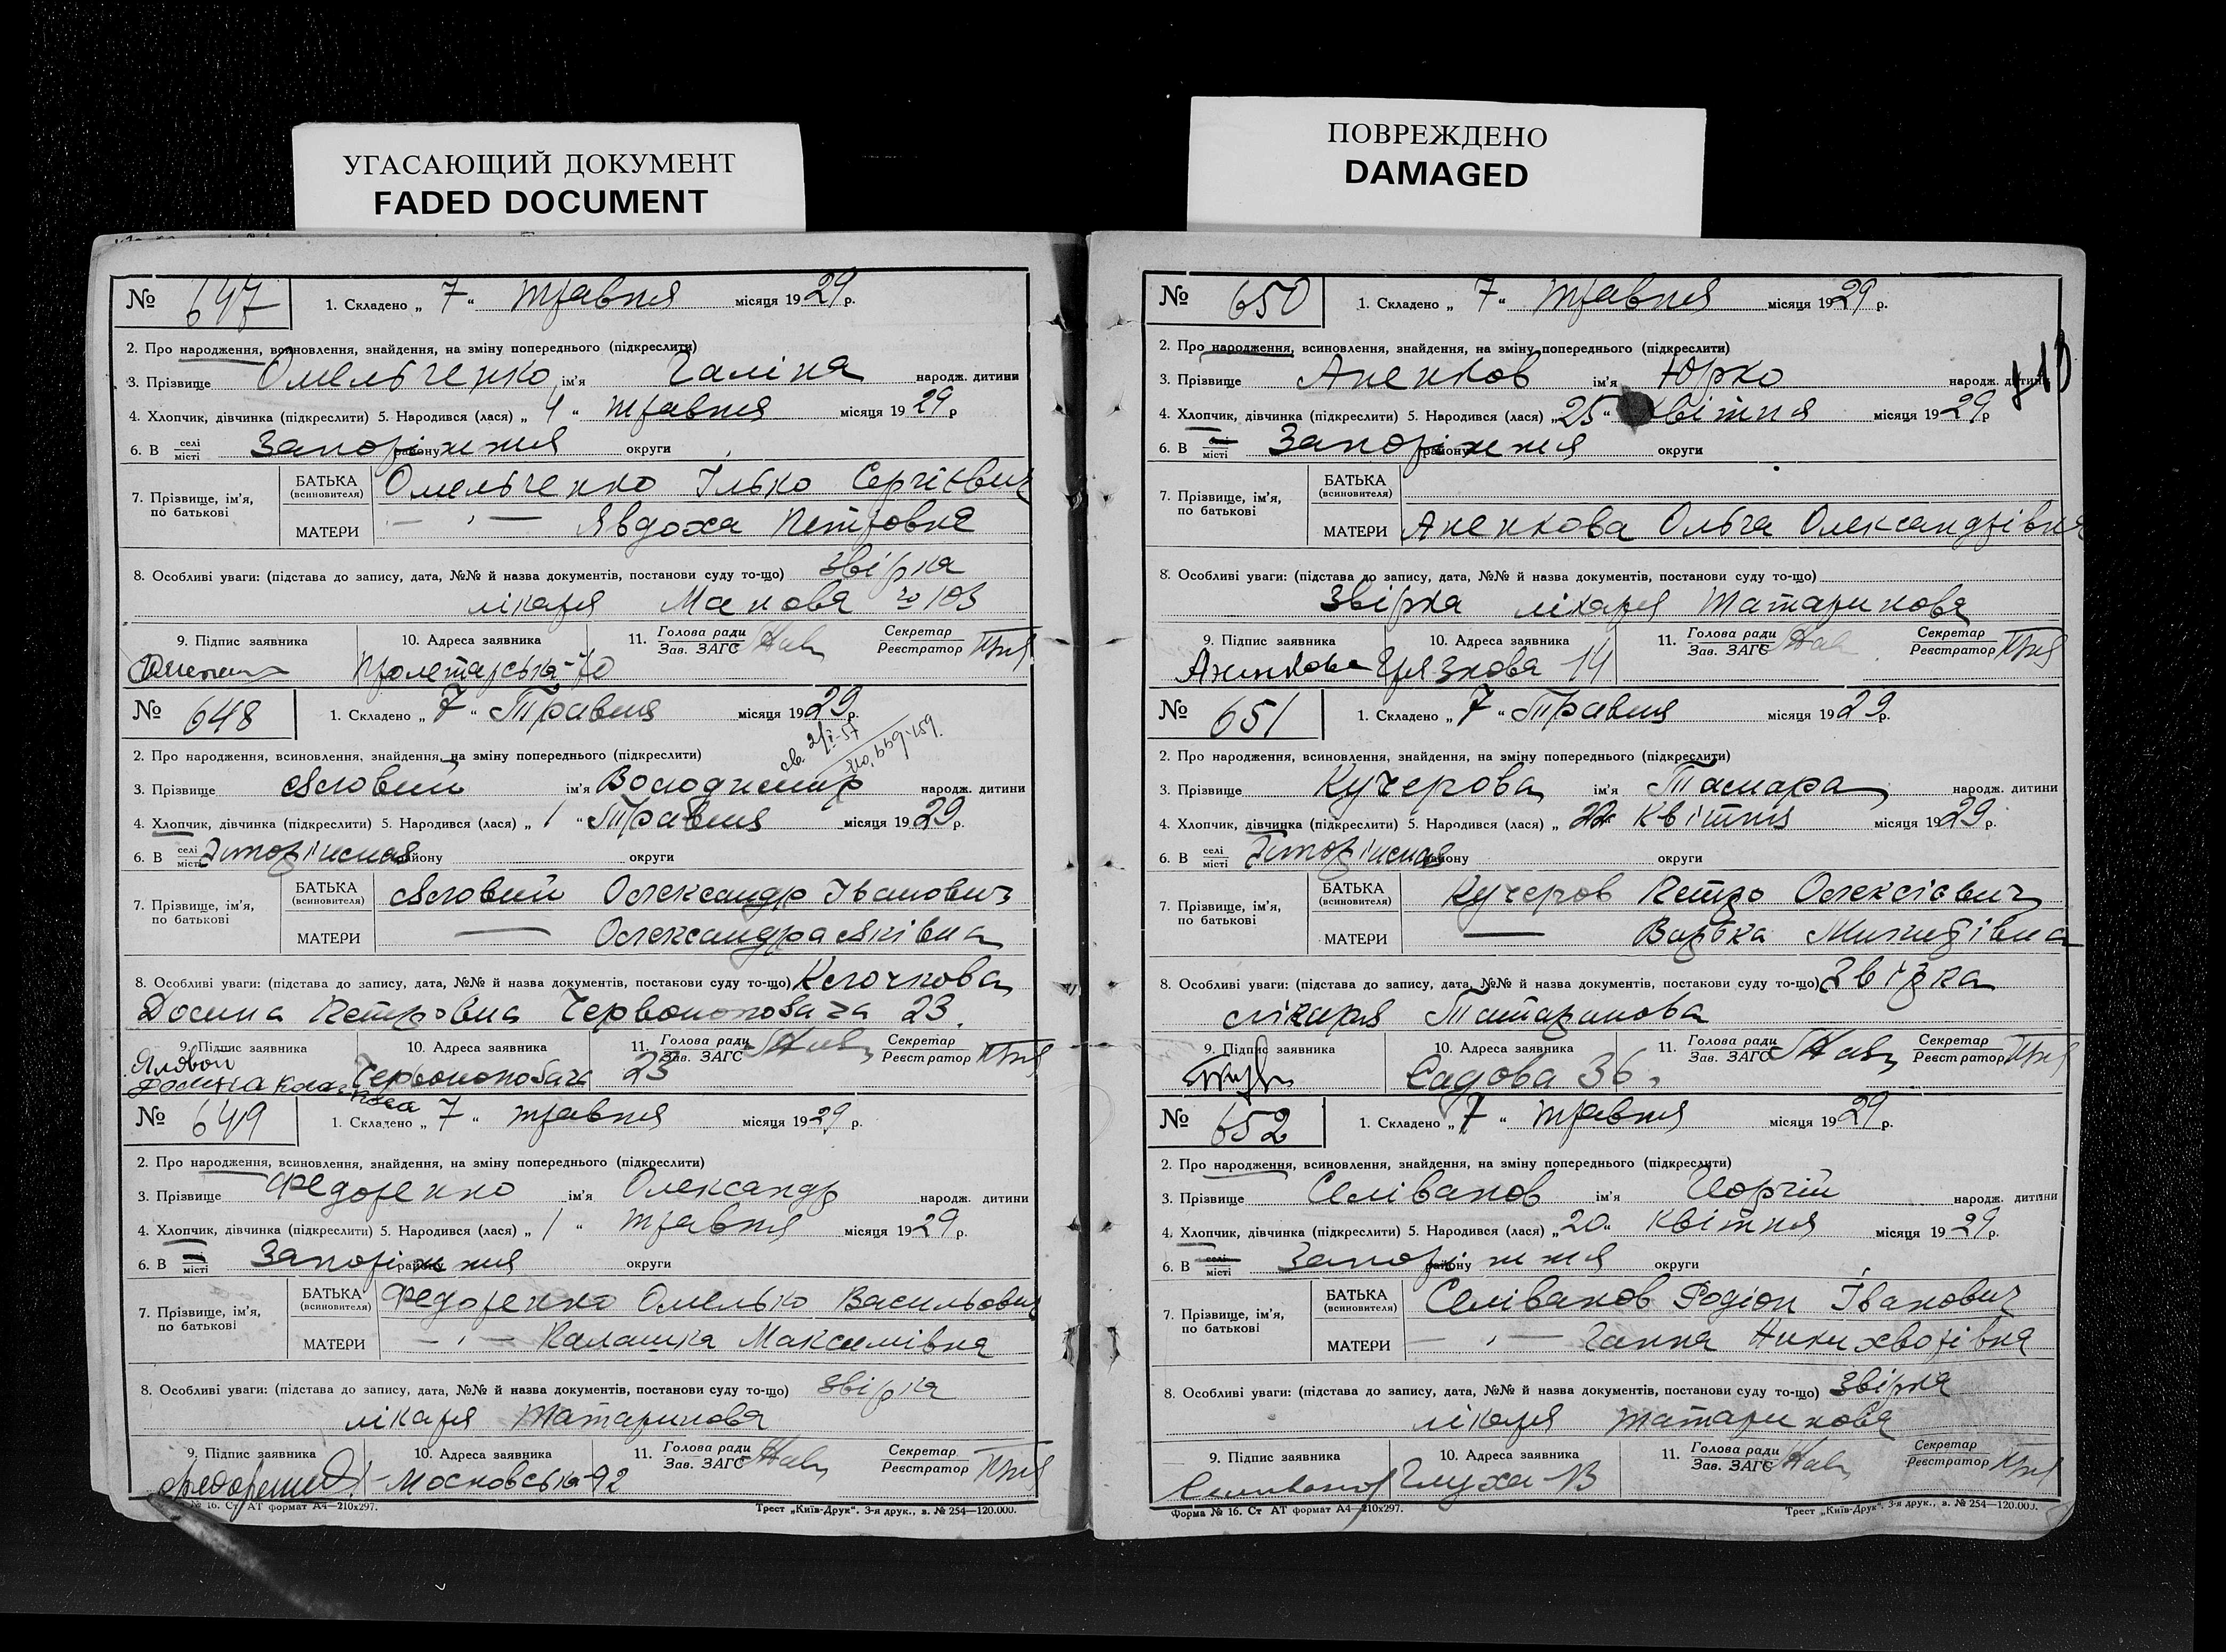 УГАСАЮЩИЙ ДОКУМЕНТ
FADED DOCUMENT
ПОВРЕЖДЕНО
DAMAGED
№ 647 1. Складено „ 7 “ травня місяця 1929 р.
2. Про народження, всиновлення, знайдення, на зміну попереднього (підкреслити)
3. Прізвище Омельченко ім'я Галіна народж. дитини
4. Хлопчик, дівчинка (підкреслити) 5. Народився (лася) „ 4 “ травня місяця 1929 р
6. В селі місті Запоріжжя району округи
7. Прізвище, ім'я, по батькові БАТЬКА (всиновителя) Омельченко Ілько Сергієвич
МАТЕРИ — „ — Явдоха Петровна
8. Особливі уваги: (підстава до запису, дата, №№ й назва документів, постанови суду то-що) Звірка
лікаря Макова № 103
9. Підпис заявника 10. Адреса заявника 11. Голова ради Зав. ЗАГС Секретар Реєстратор
Пролетарська-70
№ 648 1. Складено „ 7 “ Травня місяця 1929 р.
2. Про народження, всиновлення, знайдення, на зміну попереднього (підкреслити)
3. Прізвище Яловий ім'я Володимир народж. дитини
4. Хлопчик, дівчинка (підкреслити) 5. Народився (лася) „ 1 “ Травня місяця 1929 р.
6. В селі місті Запоріжжя району округи
7. Прізвище, ім'я, по батькові БАТЬКА (всиновителя) Яловий Олександр Іванович
МАТЕРИ — Олександра Яківна
8. Особливі уваги: (підстава до запису, дата, №№ й назва документів, постанови суду то-що) Клочкова
Домна Петровна Червонопозача 23.
9. Підпис заявника 10. Адреса заявника 11. Голова ради Зав. ЗАГС Секретар Реєстратор
Червонопозача 23
№ 649 1. Складено „ 7 “ травня місяця 1929 р.
2. Про народження, всиновлення, знайдення, на зміну попереднього (підкреслити)
3. Прізвище Федоренко ім'я Олександр народж. дитини
4. Хлопчик, дівчинка (підкреслити) 5. Народився (лася) „ 1 “ травня місяця 1929 р.
6. В селі місті Запоріжжя району округи
7. Прізвище, ім'я, по батькові БАТЬКА (всиновителя) Федоренко Омелько Васильович
МАТЕРИ — „ — Палашка Максимівна
8. Особливі уваги: (підстава до запису, дата, №№ й назва документів, постанови суду то-що) Звірка
лікаря Татаринова
9. Підпис заявника 10. Адреса заявника 11. Голова ради Зав. ЗАГС Секретар Реєстратор
Московська-92
№ 16. Ст АТ формат А4—210х297. Трест „Київ-Друк“. 3-я друк., в. № 254—120.000.
№ 650 1. Складено „ 7 “ травня місяця 1929 р.
2. Про народження, всиновлення, знайдення, на зміну попереднього (підкреслити)
3. Прізвище Аненков ім'я Юрко народж. дитини
4. Хлопчик, дівчинка (підкреслити) 5. Народився (лася) „ 25 “ квітня місяця 1929 р
6. В селі місті Запоріжжя району округи
7. Прізвище, ім'я, по батькові БАТЬКА (всиновителя)
МАТЕРИ Аненкова Ольга Олександрівна
8. Особливі уваги: (підстава до запису, дата, №№ й назва документів, постанови суду то-що)
Звірка лікаря Татаринова
9. Підпис заявника 10. Адреса заявника 11. Голова ради Зав. ЗАГС Секретар Реєстратор
Аненкова Грязнова 14
№ 651 1. Складено „ 7 “ Травня місяця 1929 р.
2. Про народження, всиновлення, знайдення, на зміну попереднього (підкреслити)
3. Прізвище Кучерова ім'я Тамара народж. дитини
4. Хлопчик, дівчинка (підкреслити) 5. Народився (лася) „ 22 Квітня місяця 1929 р.
6. В селі місті Запоріжжя району округи
7. Прізвище, ім'я, по батькові БАТЬКА (всиновителя) Кучеров Петро Олексієвич
МАТЕРИ —
8. Особливі уваги: (підстава до запису, дата, №№ й назва документів, постанови суду то-що) Звірка
лікаря Татаринова
9. Підпис заявника 10. Адреса заявника 11. Голова ради Зав. ЗАГС Секретар Реєстратор
Садова 36.
№ 652 1. Складено „ 7 “ травня місяця 1929 р.
2. Про народження, всиновлення, знайдення, на зміну попереднього (підкреслити)
3. Прізвище Селіванов ім'я Георгій народж. дитини
4. Хлопчик, дівчинка (підкреслити) 5. Народився (лася) „ 20 “ квітня місяця 1929 р.
6. В селі місті Запоріжжя району округи
7. Прізвище, ім'я, по батькові БАТЬКА (всиновителя) Селіванов Родіон Іванович
МАТЕРИ — „ — Ганна Никихворівна
8. Особливі уваги: (підстава до запису, дата, №№ й назва документів, постанови суду то-що) Звірка
лікаря Татаринова
9. Підпис заявника 10. Адреса заявника 11. Голова ради Зав. ЗАГС Секретар Реєстратор
Глуха-13
Форма № 16. Ст АТ формат А4—210х297. Трест „Київ-Друк“. 3-я друк., в. № 254—120.000.